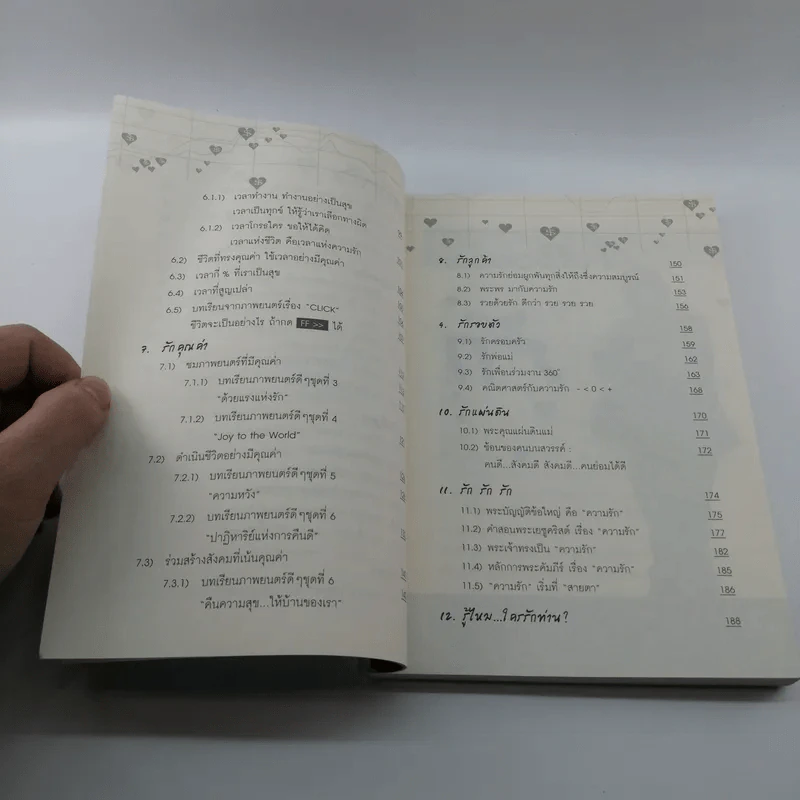 6.1.1) เวลาทำงาน ทำงานอย่างเป็นสุข
เวลาเป็นทุกข์ ให้รู้ว่าเราเลือกทางผิด
6.1.2) เวลาโกรธใคร ขอให้ได้คิด
เวลาแห่งชีวิต คือเวลาแห่งความรัก
6.2) ชีวิตที่ทรงคุณค่า ใช้เวลาอย่างมีคุณค่า
6.3) เวลากี่ % ที่เราเป็นสุข
6.4) เวลาที่สูญเปล่า
6.5) บทเรียนจากภาพยนตร์เรื่อง "CLICK"
ชีวิตจะเป็นอย่างไร ถ้ากด FF >> ได้
7. รักคุณค่า
7.1) ชมภาพยนตร์ที่มีคุณค่า
7.1.1) บทเรียนภาพยนตร์ดีๆชุดที่ 3
"ด้วยแรงแห่งรัก"
7.1.2) บทเรียนภาพยนตร์ดีๆชุดที่ 4
"Joy to the World"
7.2) ดำเนินชีวิตอย่างมีคุณค่า
7.2.1) บทเรียนภาพยนตร์ดีๆชุดที่ 5
"ความหวัง"
7.2.2) บทเรียนภาพยนตร์ดีๆชุดที่ 6
"ปาฏิหาริย์แห่งการคืนดี"
7.3) ร่วมสร้างสังคมที่เน้นคุณค่า
7.3.1) บทเรียนภาพยนตร์ดีๆชุดที่ 6
"คืนความสุข...ให้บ้านของเรา"
รักลูกค้า 150
8.1) ความรักย่อมผูกพันทุกสิ่งให้ถึงซึ่งความสมบูรณ์ 151
8.2) พระพร มากับความรัก 153
8.3) รวยด้วยรัก ดีกว่า รวย รวย รวย 156
9. รักรอบตัว 158
9.1) รักครอบครัว 159
9.2) รักพ่อแม่ 162
9.3) รักเพื่อนร่วมงาน 360° 163
9.4) คณิตศาสตร์กับความรัก - < 0 < + 168
10. รักแผ่นดิน 170
10.1) พระคุณแผ่นดินแม่ 171
10.2) ช้อนของคนบนสวรรค์ : 172
คนดี...สังคมดี สังคมดี...คนย่อมได้ดี
11. รัก รัก รัก 174
11.1) พระบัญญัติข้อใหญ่ คือ "ความรัก" 175
11.2) คำสอนพระเยซูคริสต์ เรื่อง "ความรัก" 177
11.3) พระเจ้าทรงเป็น "ความรัก" 182
11.4) หลักการพระคัมภีร์ เรื่อง "ความรัก" 185
11.5) "ความรัก" เริ่มที่ "สายตา" 186
12. รู้ไหม...ใครรักท่าน? 188